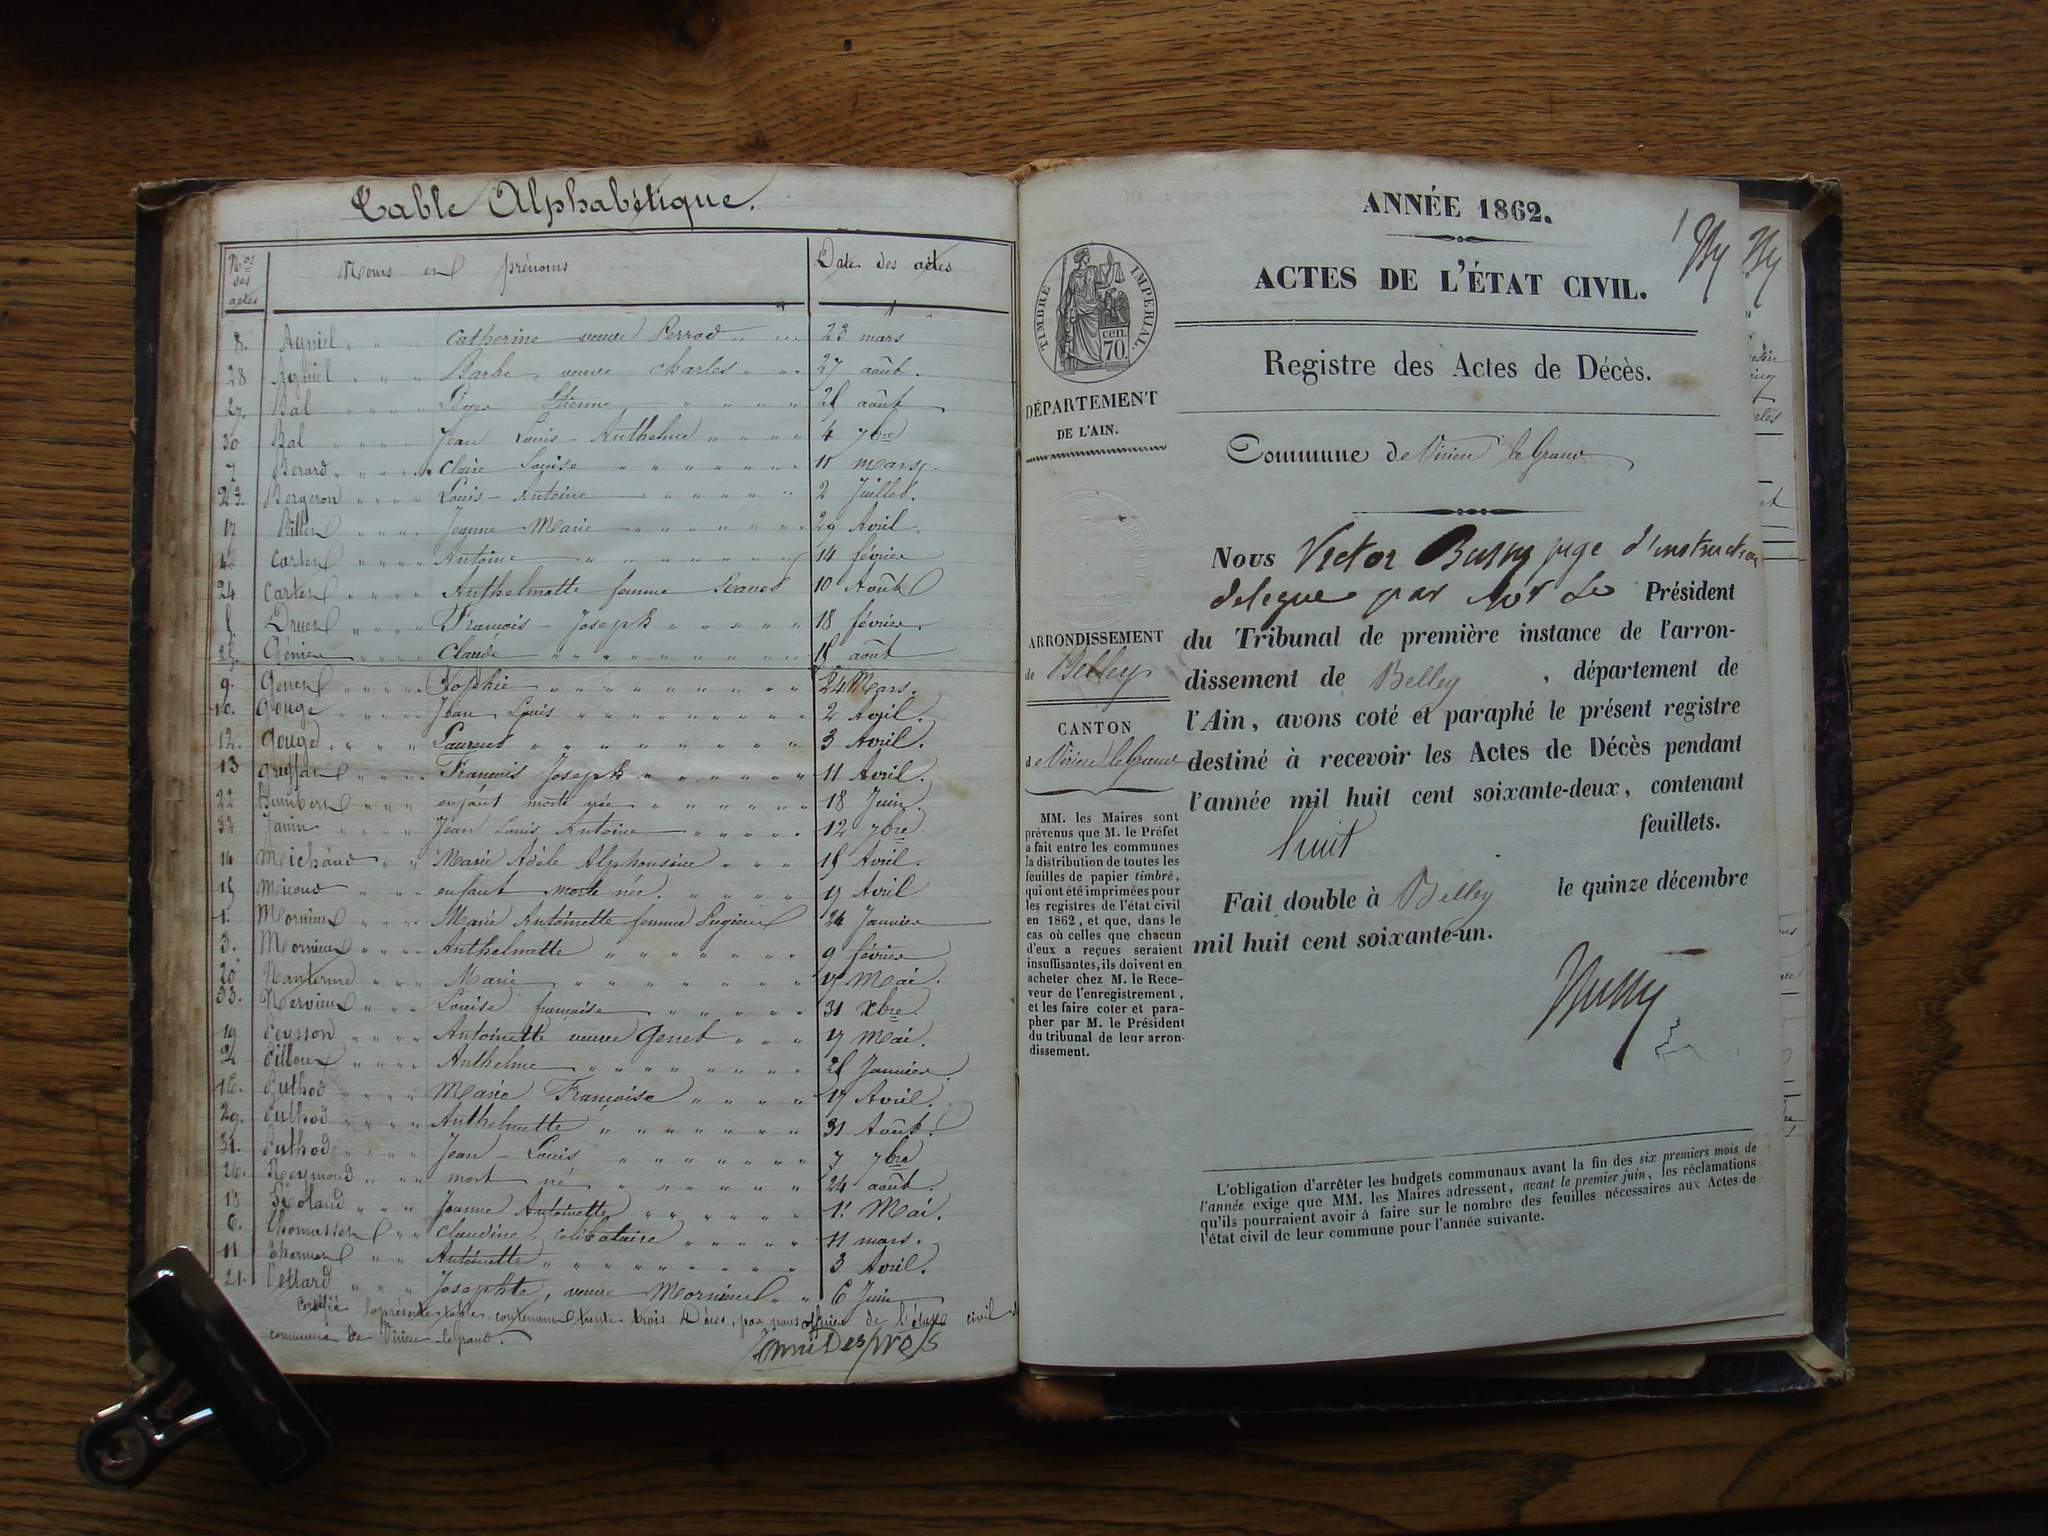 Table Alphabétique.
Nos des actes
Noms et prénoms
Date des actes
8. Agniel Catherine veuve Perrod 23 mars
28 Agniel Barbe, veuve Charles 27 août.
27. Bal Étienne août
30 Bal Jean Louis-Anthelme 4 7bre
7 Berard Claire Louise 11 mars.
23. Bergeron Louis-Antoine 2 Juillet.
17 Jeanne Marie 29 Avril.
Antoine 14 février
24 Anthelmette femme 10 Août
François-Joseph 18 février.
Claude août
9. Genet Sophie 24 Mars.
10. Gouge Jean Louis 2 Avril.
12. Gouged Laurent 3 Avril.
13 François Joseph 11 Avril.
22 Humbert enfant morte née 18 Juin.
32 Janin Jean Louis Antoine 12 7bre
14 Michaud Marie Adèle Alphonsine Avril.
enfant morte née. Avril
1. Mornieux Marie Antoinette femme 24 Janvier
3. Mornieux Anthelmette 9 février
20 Marie Mai.
33. Nervieux Louise françoise 31 Xbre.
19 Peysson Antoinette veuve Genet Mai.
2 Anthelme Janvier.
16. Puthod Marie Françoise Avril.
29. Puthod Anthelmette 31 Août.
31. Puthod Jean-Louis 7 7bre
26. Reymond mort né 24 août.
18 Roland Jeanne Antoinette 1er Mai.
6. Claudine, célibataire 11 mars.
11 Antoinette 3 Avril.
21. Vettard Josephte, veuve Mornieux 6 Juin
Certifié la présente table contenant trente trois Décès, par nous officier de l'état civil
commune de Virieu leGrand.
ANNÉE 1862.
1
ACTES DE L'ÉTAT CIVIL.
TIMBRE IMPERIAL.
cen. 70.
Registre des Actes de Décès.
DÉPARTEMENT
DE L'AIN.
Commune de Virieu le Grand
Nous Victor juge d'instruction
delegue par Mr Le Président
du Tribunal de première instance de l'arron-
dissement de Belley, département de
l'Ain, avons coté et paraphé le présent registre
destiné à recevoir les Actes de Décès pendant
l'année mil huit cent soixante-deux, contenant
huit feuillets.
Fait double à Belley le quinze décembre
mil huit cent soixante-un.
ARRONDISSEMENT
de Belley
CANTON
de Virieu leGrand
MM. les Maires sont
prévenus que M. le Préfet
a fait entre les communes
la distribution de toutes les
feuilles de papier timbré,
qui ont été imprimées pour
les registres de l'état civil
en 1862, et que, dans le
cas où celles que chacun
d'eux a reçues seraient
insuffisantes, ils doivent en
acheter chez M. le Rece-
veur de l'enregistrement,
et les faire coter et para-
pher par M. le Président
du tribunal de leur arron-
dissement.
L'obligation d'arrêter les budgets communaux avant la fin des six premiers mois de
l'année exige que MM. les Maires adressent, avant le premier juin, les réclamations
qu'ils pourraient avoir à faire sur le nombre des feuilles nécessaires aux Actes de
l'état civil de leur commune pour l'année suivante.